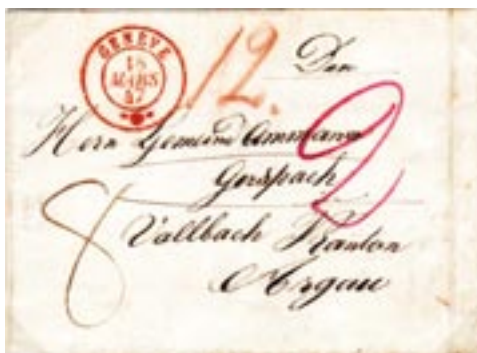 GENÈVE
18
MARS
47
12.
Den
Herrn Gemeind Ammann
2
8
Vallbach Kanton
Argau